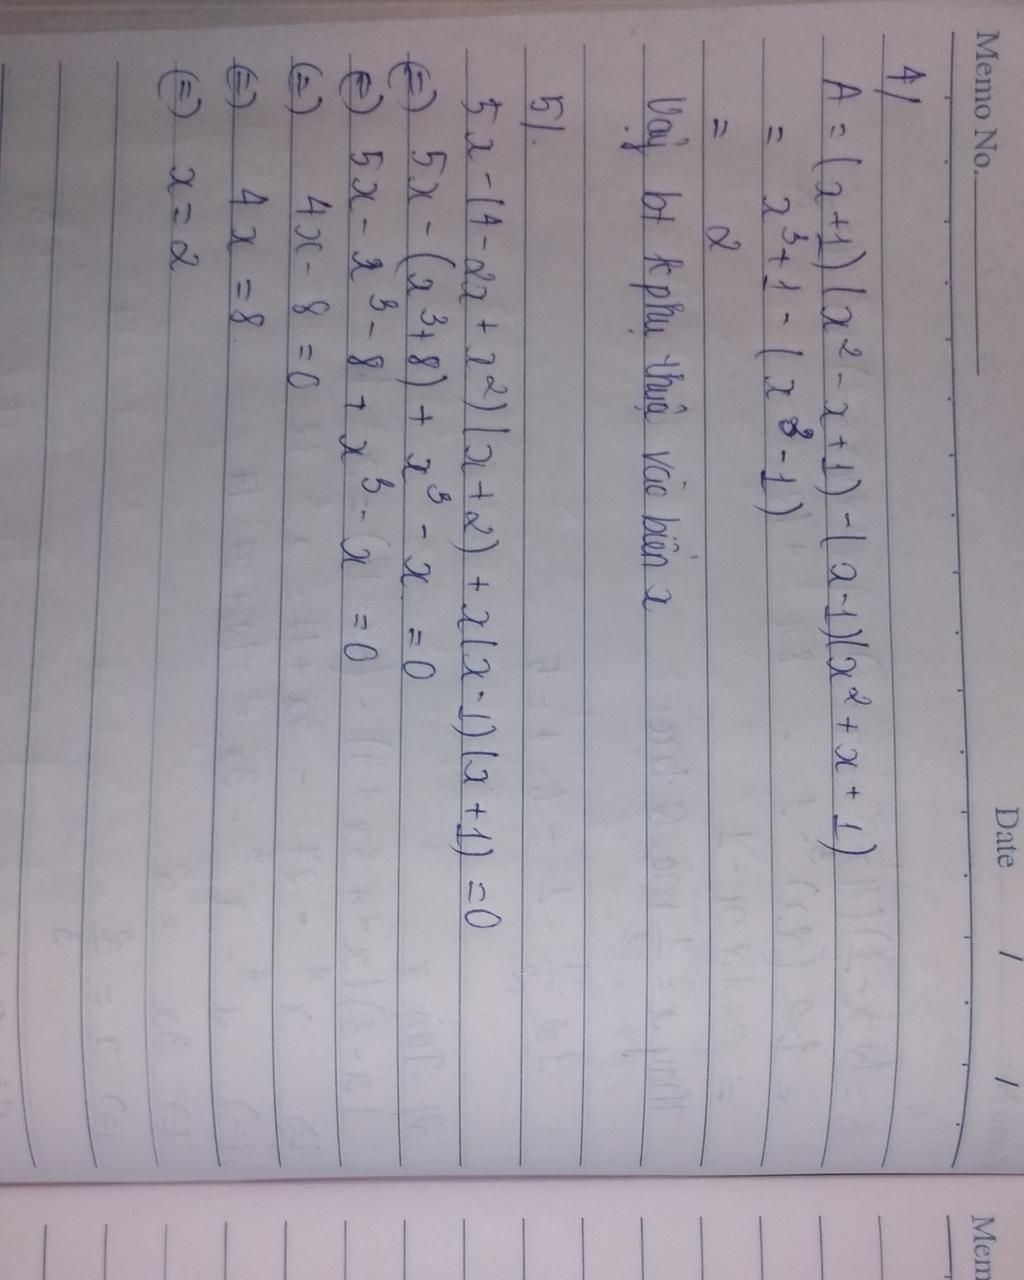 Memo No. Date / /
4/
A = (x+1)(x² - x + 1) - (x - 1)(x² + x + 1)
= x³ + 1 - (x³ - 1)
= 2
Vậy bt k phụ thuộc vào biến x
5/.
5x - (4 - 2x + x²)(x + 2) + x(x - 1)(x + 1) = 0
(=) 5x - (x³ + 8) + x³ - x = 0
(=) 5x - x³ - 8 + x³ - x = 0
(=) 4x - 8 = 0
(=) 4x = 8
(=) x = 2
Mem